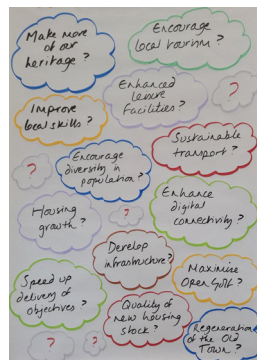 Make more
of our
heritage ?
Encourage
local tourism ?
Enhanced
Leisure
Facilities ?
?
Improve
local skills ?
Sustainable
transport ?
?
Encourage
diversity in
population ?
Enhance
digital
connectivity ?
Housing
growth ?
?
Develop
infrastructure ?
Maximise
Open Golf ?
Speed up
delivery of
objectives ?
Quality of
new housing
stock ?
Regeneration
of the Old
Town ?
?
?